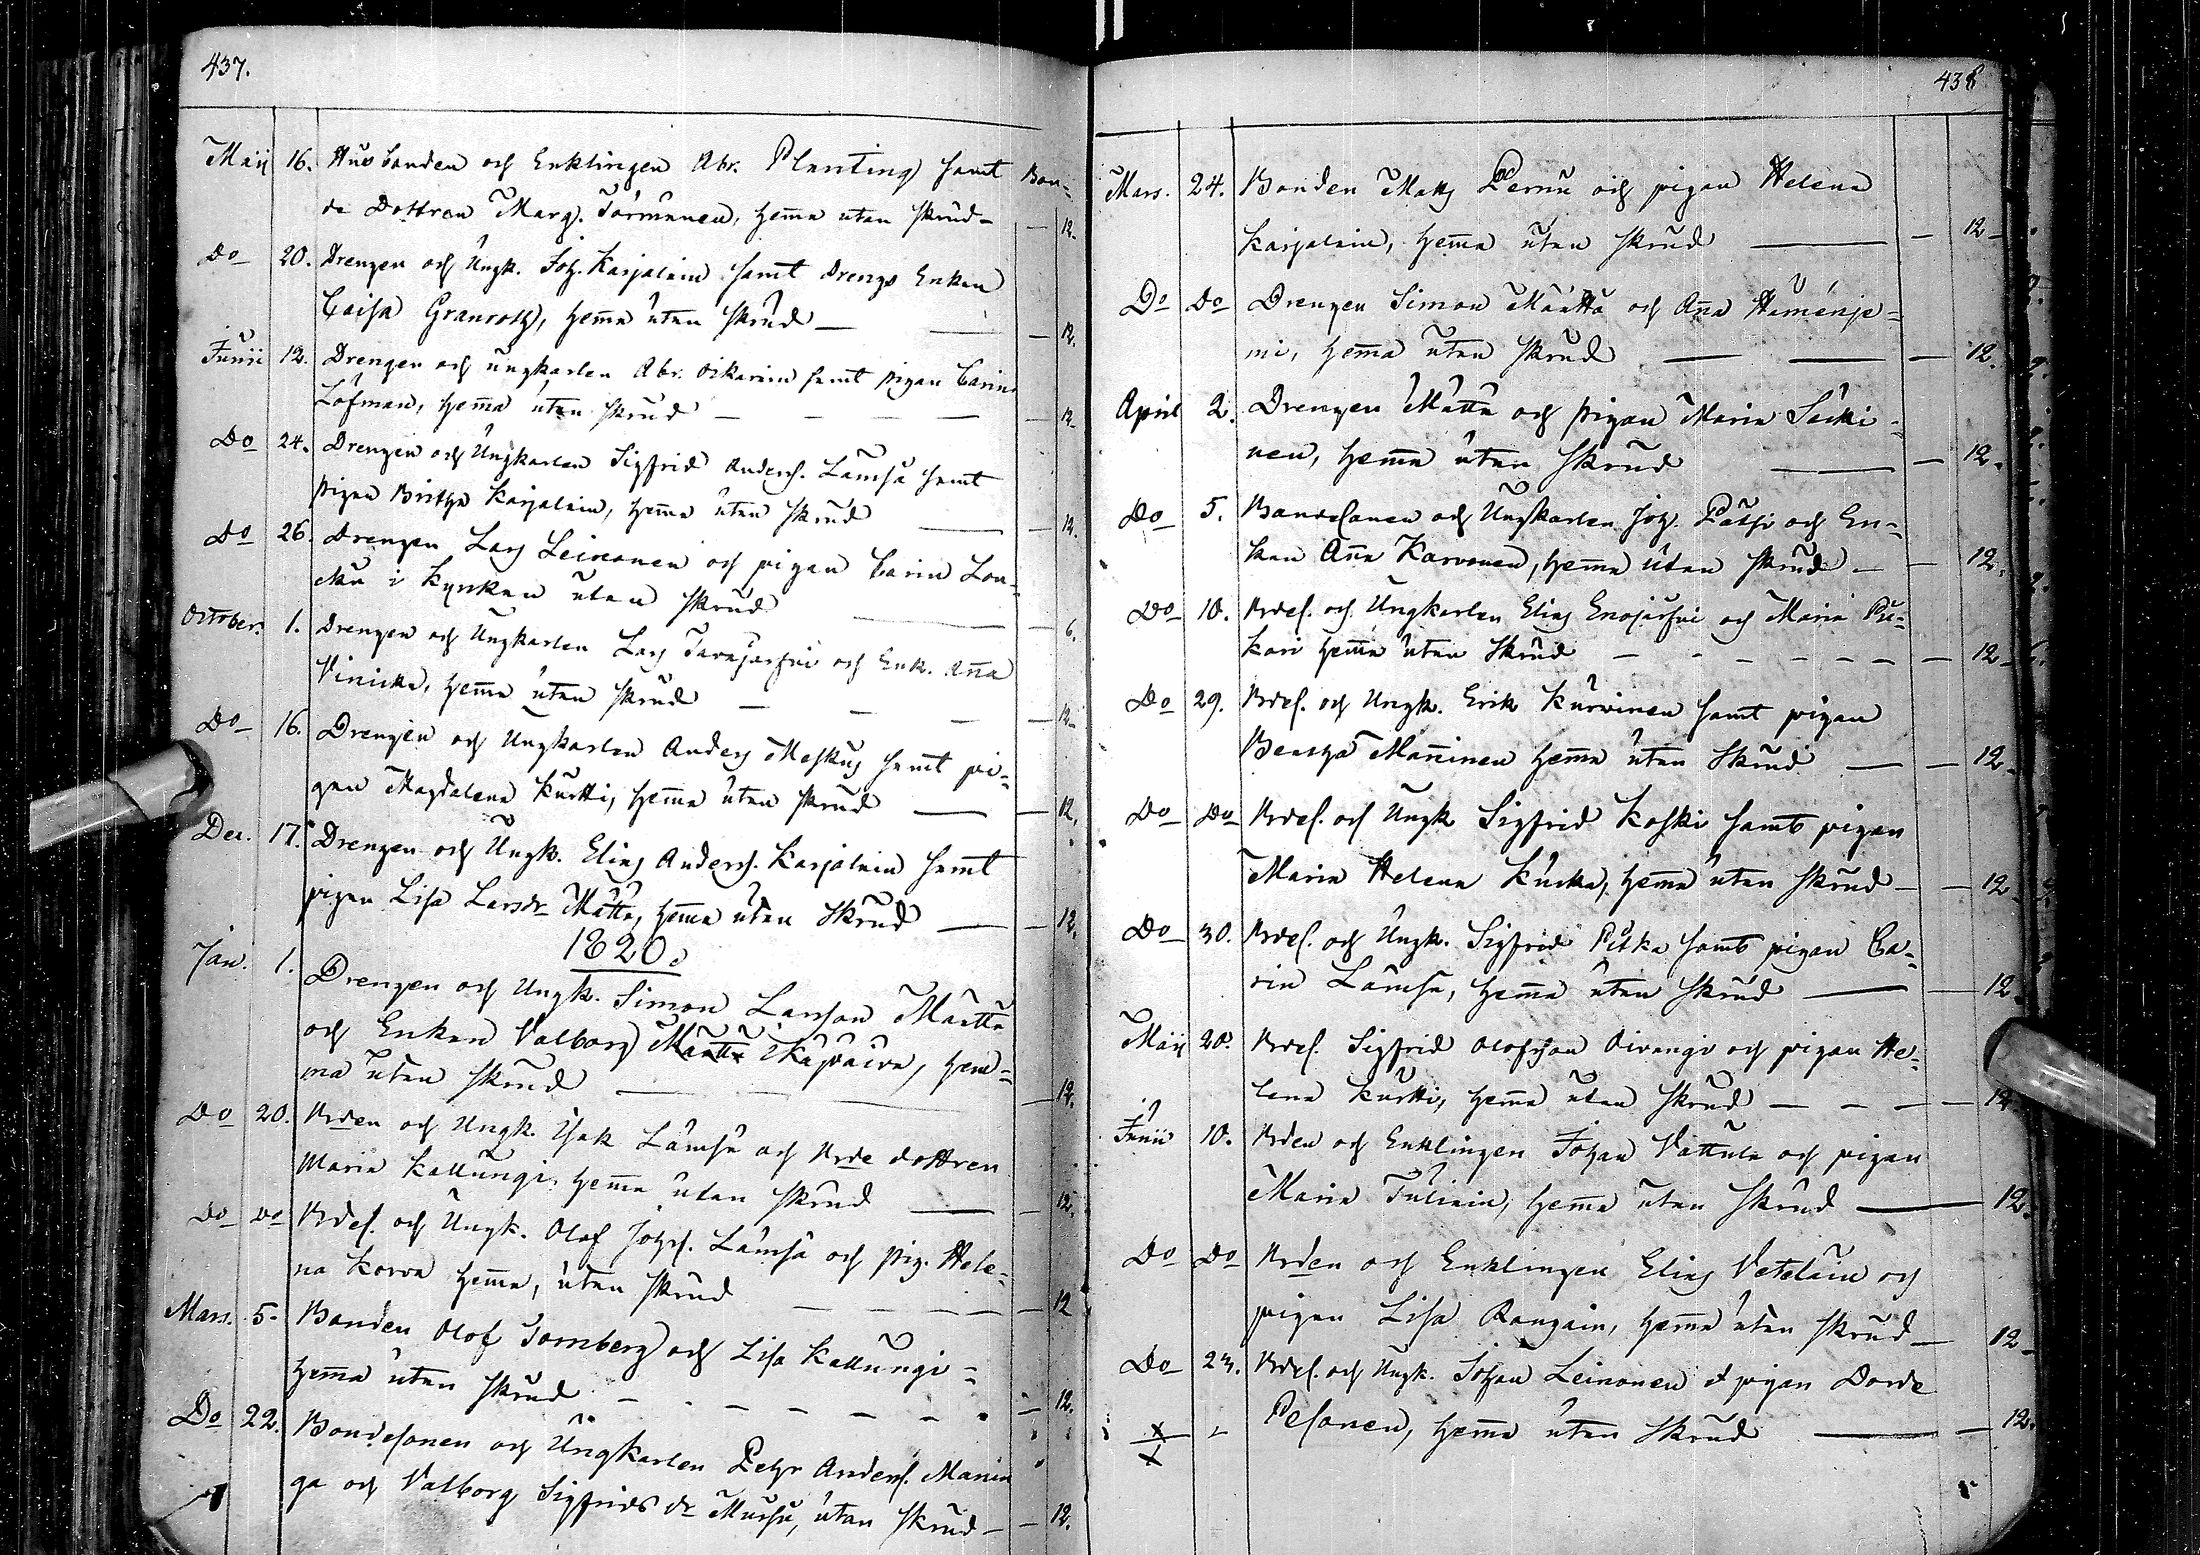 437.
Maij 16. Husbonden och Enklingen Abr. Planting samt Bon-
de Dottren Marg. Törmänen, hemma utan skrud — 12.
Do 20. Drengen och Ungk. Joh. Karjalain samt Drengs Enkan
Caisa Granroth, hemma utan skrud — 12.
Junii 12. Drengen och ungkarlen Abr. Oikarin samt pigan Carin
Löfman, hemma utan skrud — 12.
Do 24. Drengen och Ungkarlen Sigfrid Anders. Lämsä samt
pigan Birtha Karjalain, hemma utan skrud — 12.
Do 26. Drengen Lars Leinonen och pigan Carin Lou-
cku i Kyrkan utan skrud — 6.
October. 1. Drengen och Ungkarlen Lars Tavajärfvi och Enk. Anna
Vinicka, hemma utan skrud — 12.
Do 16. Drengen och Ungkarlen Anders Meskus samt pi-
gan Magdalena Kurtti, hemma utan skrud — 12.
Dec. 17. Drengen och Ungk. Elias Anders. Karjalain samt
pigan Lisa Larsdr Määtta, hemma utan skrud — 12.
1820.
Jan. 1. Drengen och Ungk. Simon Larsson Määtta
och Enkan Valborg Määtta Käpäivä, hem-
ma utan skrud — 12.
Do 20. Brden och Ungk. Isak Lämsä och Brde dottren
Maria Kallungi, hemma utan skrud — 12.
Do Do Brdes. och Ungk. Olof Johs. Lämsä och pig. Hele-
na Korva hemma, utan skrud — 12
Mars. 5. Bonden Olof Tornberg och Lisa Kallungi
hemma utan skrud — 12.
Do 22. Bondesonen och Ungkarlen Petr Anders. Manin
ga och Valborg Sigfridsdr Mursu, utan skrud — 12.
438
Mars. 24. Bonden Matts Pernu och pigan Helena
Karjalain, hemma utan skrud — 12
Do Do Drengen Simon Määtta och Anna Häménje-
mi, hemma utan skrud — 12.
April 2. Drengen Mätta och pigan Maria Säcki-
nen, hemma utan skrud — 12.
Do 5. Bondesonen och Ungkarlen Joh. Pätsi och En-
kan Anna Karvonen, hemma utan skrud — 12.
Do 10. Brdes. och Ungkarlen Elias Enojärfvi och Maria Pu-
kari hemma utan skrud — 12
Do 29. Brdes. och Ungk. Erik Kurvinen samt pigan
Beatha Manninen hemma utan skrud — 12
Do Do Brdes. och Ungk Sigfrid Koski samt pigan
Maria Helena Kuska, hemma utan skrud — 12
Do 30. Brdes. och Ungk. Sigfrid Pitkä samt pigan Ca-
rin Lämsä, hemma utan skrud — 12
Maij 20. Brdes. Sigfrid Olofsson Oivangi och pigan He-
lena Kurtti, hemma utan skrud — 12
Junii 10. Brden och Enklingen Johan Vattula och pigan
Maria Tuliain, hemma utan skrud — 12.
Do Do Brden och Enklingen Elias Vetelain och
pigan Lisa Rangain, hemma utan skrud — 12
Do 23. Brdes. och Ungk. Johan Leinonen et pigan Dorde
Pesonen, hemma utan skrud — 12.